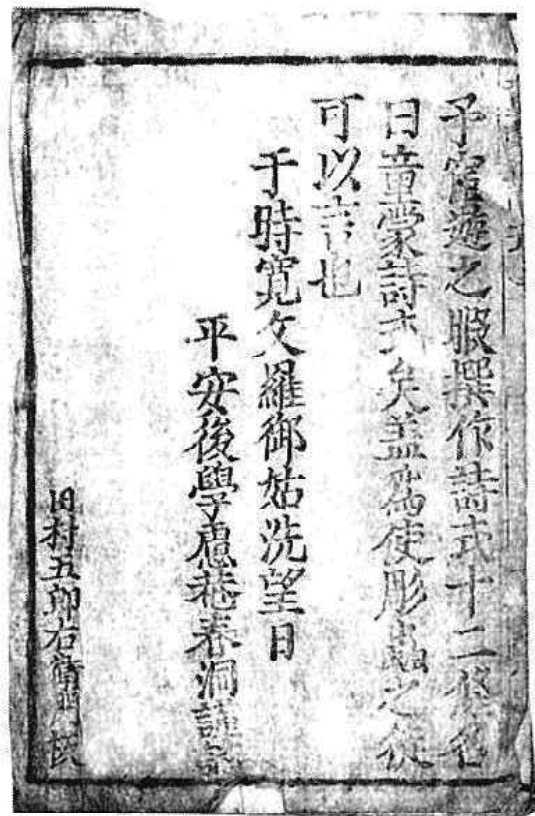 予宦遊之暇撰作詩式十二條名
曰童蒙詩式矣盖爲使彫蟲之徒
可以言也
于時寛文羅御姑洗望日
平安後學 巷春洞謹
田村五郎右衛門板